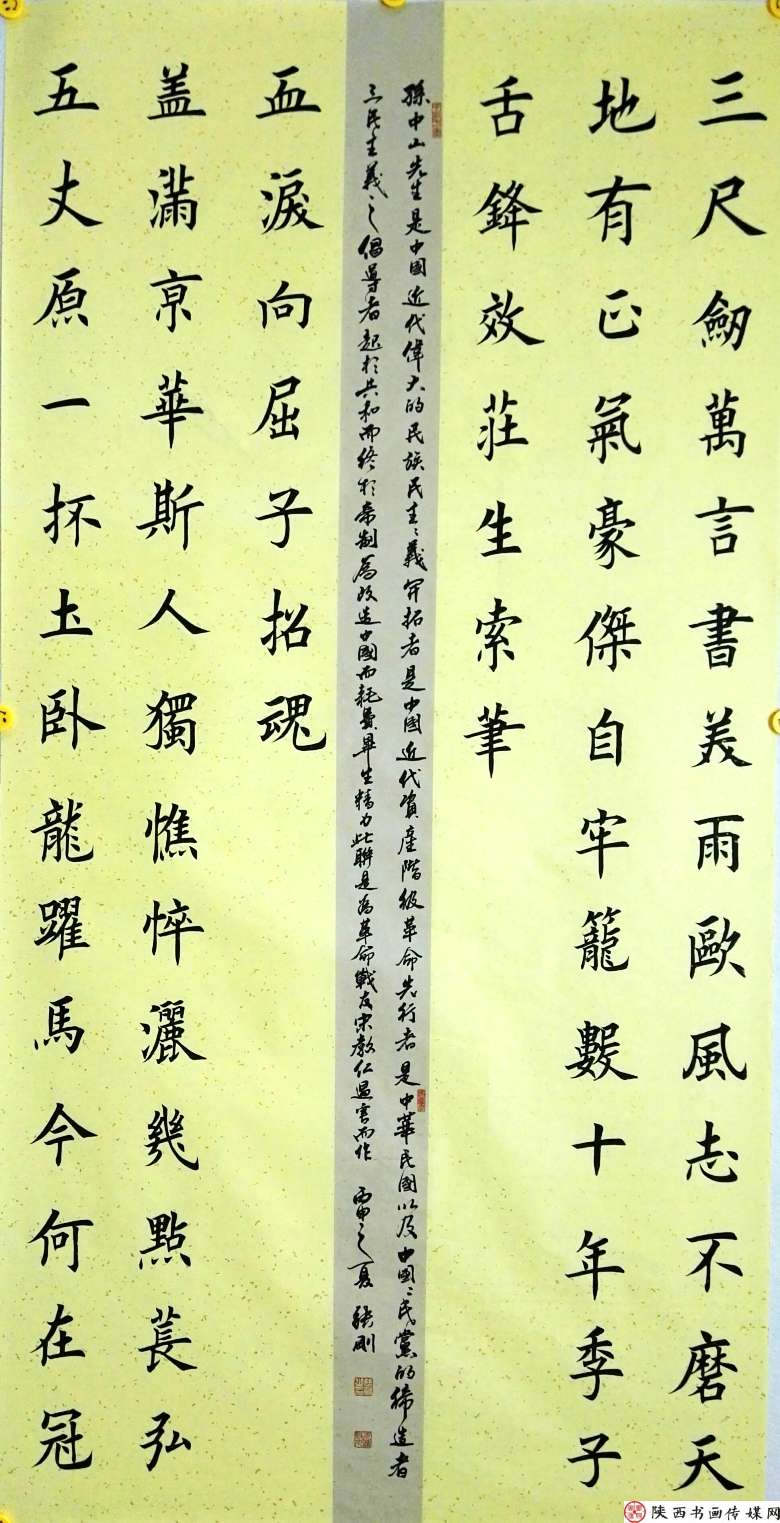 三尺劒萬言書美雨歐風志不磨天
地有正氣豪傑自牢籠數十年季子
舌鋒效莊生索筆
孫中山先生是中國近代偉大的民族民主〻義開拓者是中國近代資產階級革命先行者是中華民國以及中國〻民黨的締造者
三民主義之倡導者起於共和而終於帝制為改造中國而耗費畢生精力此聯是為革命戰友宋教仁遇害而作 丙申之夏 張剛
五丈原一抔土臥龍躍馬今何在冠
蓋滿亰華斯人獨憔悴灑幾點萇弘
血淚向屈子招魂
陕西书画传媒网